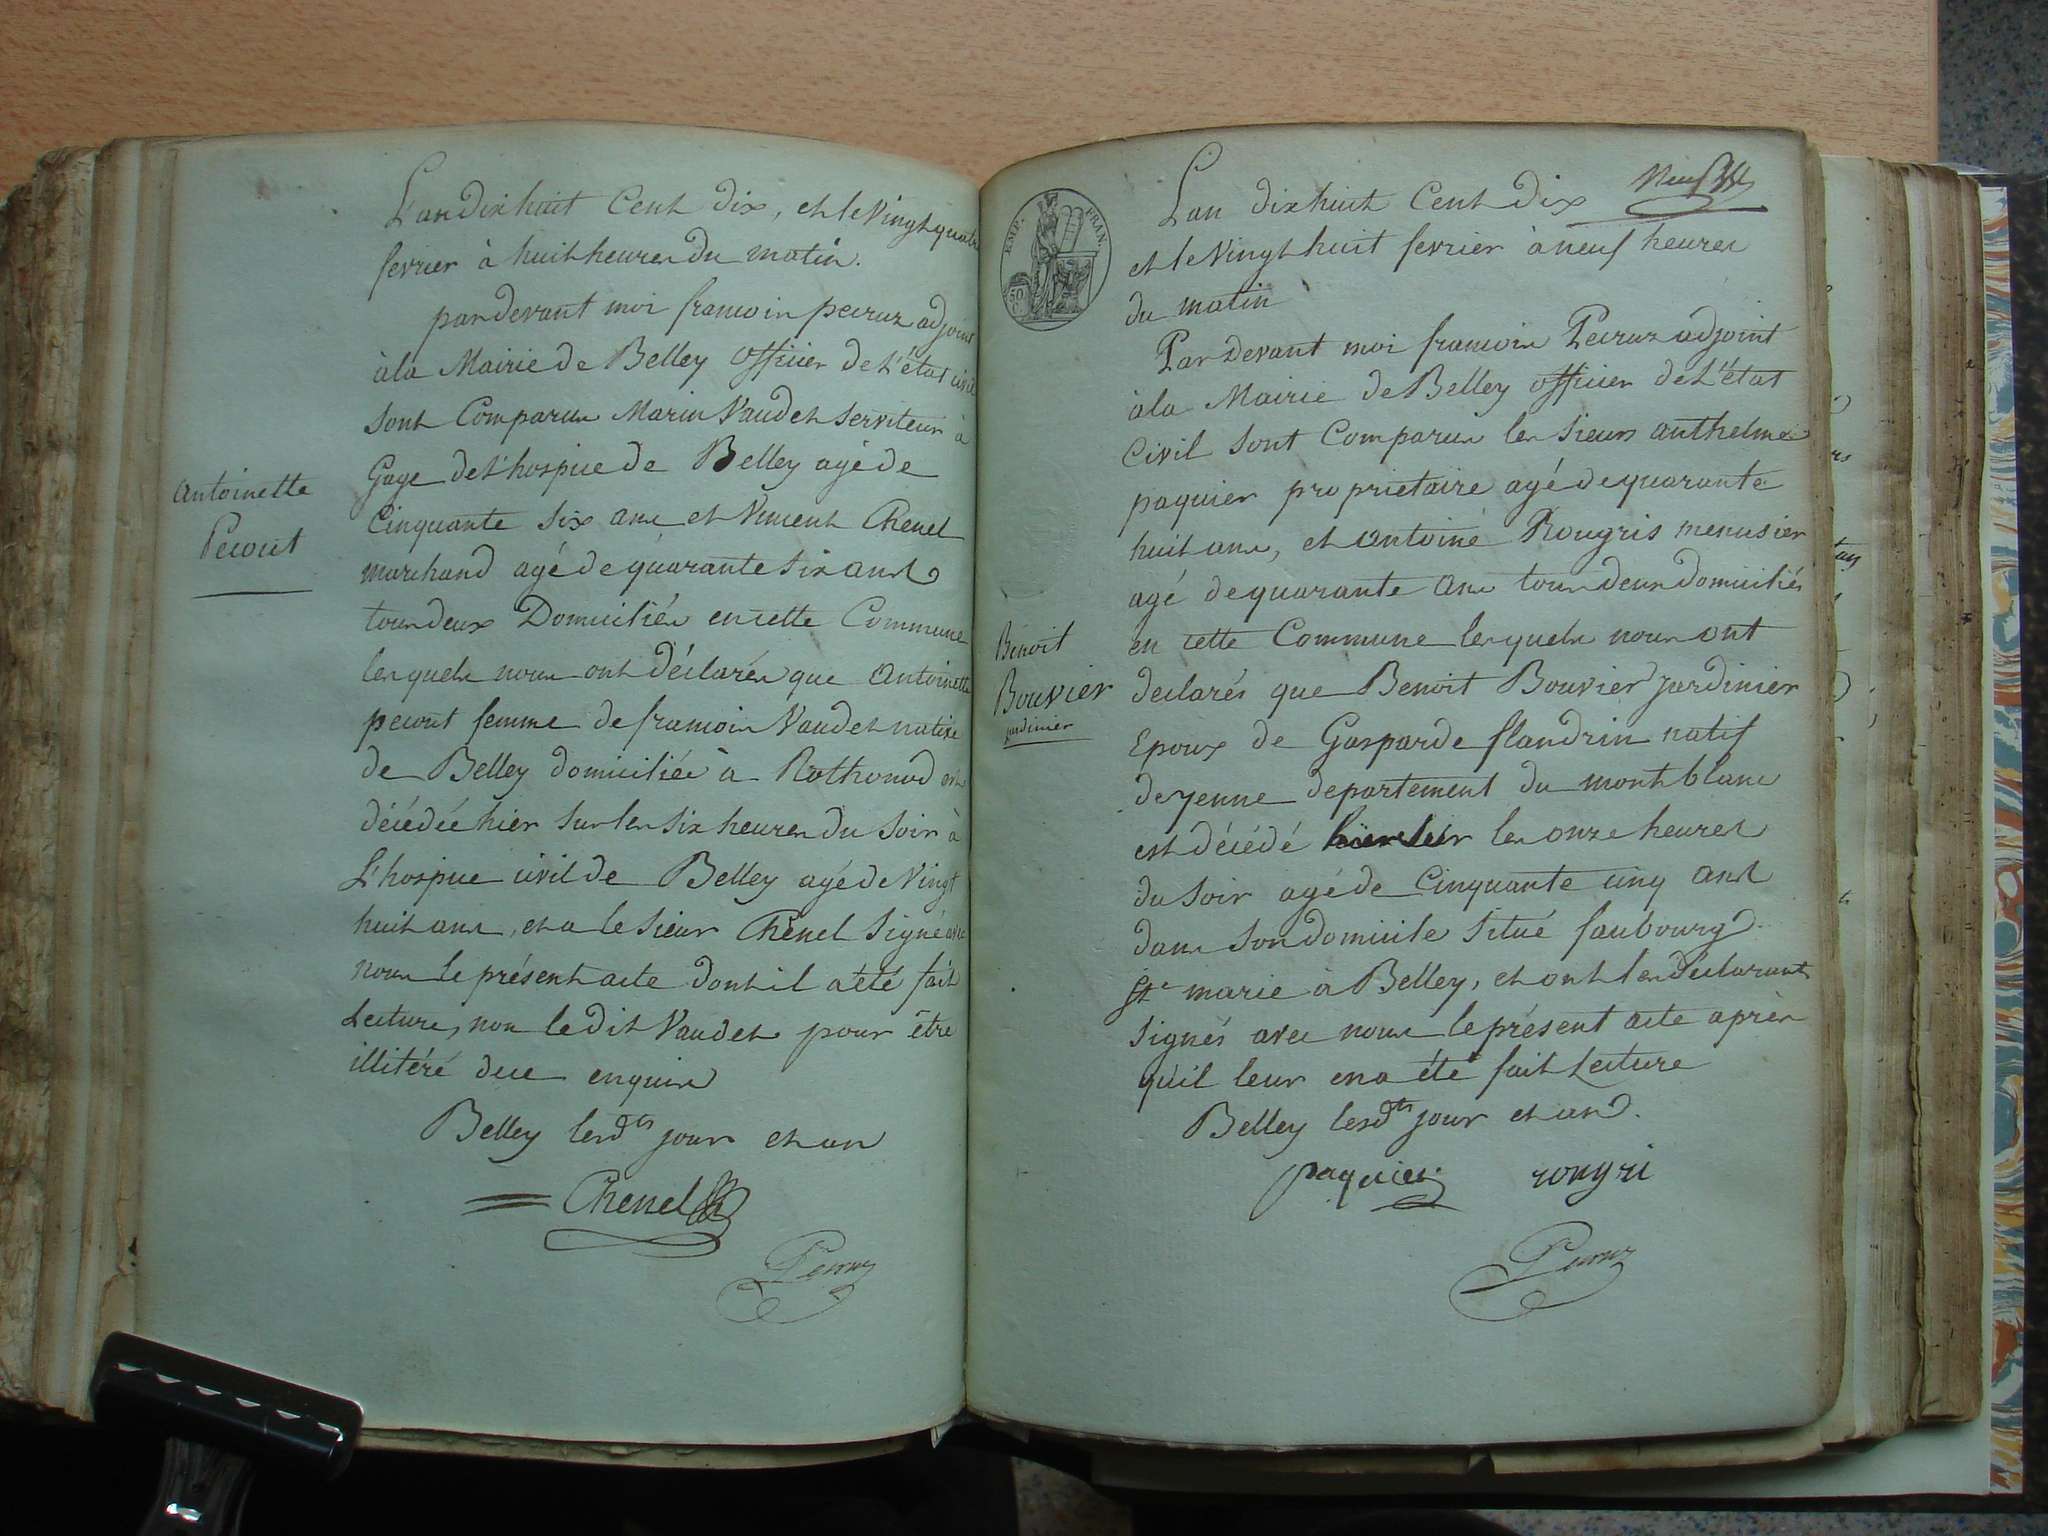 L'an Dix huit Cent Dix, et le Vingt quatre
fevrier à huit heures du matin.
pardevant moi francois pecruz adjoint
à la Mairie de Belley Officier de L'état civil
sont Comparus Marin Vaudet serviteur à
Gage de L'hospice de Belley agé de
Cinquante six ans et Vincent Chenel
marchand agé de quarante six ans
tous deux Domiciliés en cette Commune
lesquels nous ont déclarés que Antoinette
pecout femme de francois Vaudet native
de Belley domiciliée à Rothonod est
décédée hier sur les six heures du soir à
L'hospice civil de Belley agé de Vingt
huit ans, et a le sieur Chenel Signé avec
nous le présent acte dont il a été fait
Lecture, non le dit Vaudet pour être
illitéré de ce enquis
Belley lesdts jour et an
Chenel
Pecruz
Antoinette
Pecout
Neuf
EMP. FRAN.
50
L'an dix huit Cent Dix
et le Vingt huit fevrier à neuf heures
du matin
Par devant moi francois Pecruz adjoint
à la Mairie de Belley officier de L'état
Civil sont Comparus les sieurs anthelme
paquier proprietaire agé de quarante
huit ans, et antoine Rougris menusier
agé de quarante ans tous deux domiciliés
en cette Commune lesquels nous ont
declarés que Benoit Bouvier jardinier
Epoux de Gasparde flandrin natif
de yenne departement du montblanc
est décédé hier les onze heures
du soir agé de Cinquante cinq ans
dans son domicile situé faubourg
Ste marie à Belley, et ont les déclarants
signés avec nous le présent acte après
qu'il leur en a été fait Lecture
Belley lesdts jour et an.
paquier rougri
Pecruz
Benoit
Bouvier
jardinier